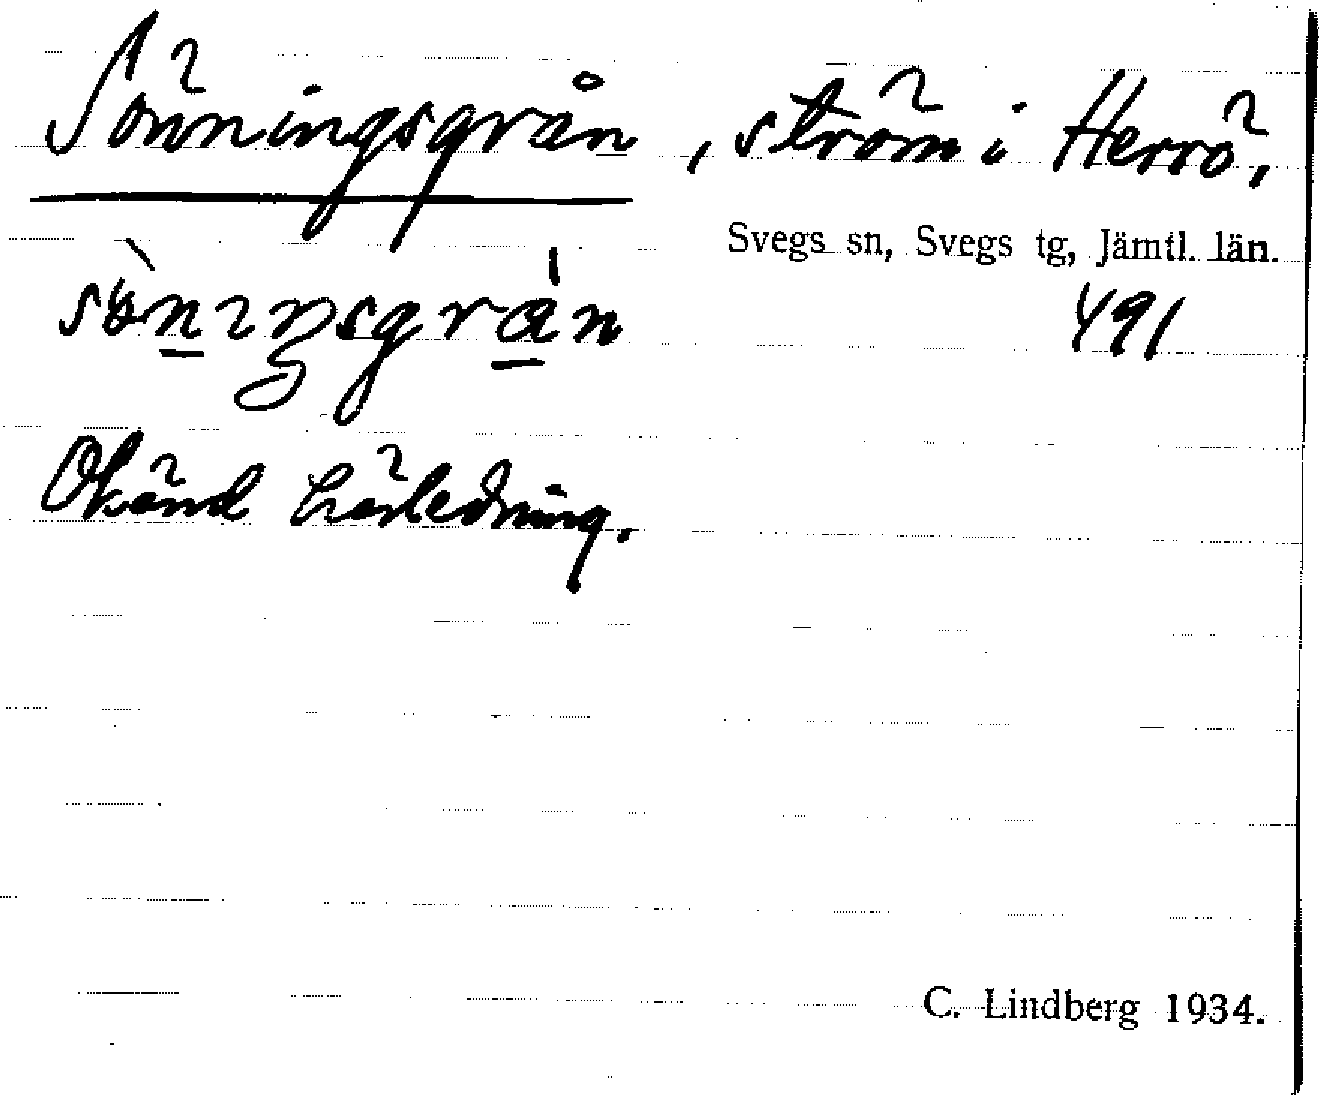 Sönningsgrån, ström i Herrö,
Svegs sn, Svegs tg, Jämtl. län.
491
Okänd härledning.
C. Lindberg 1934.